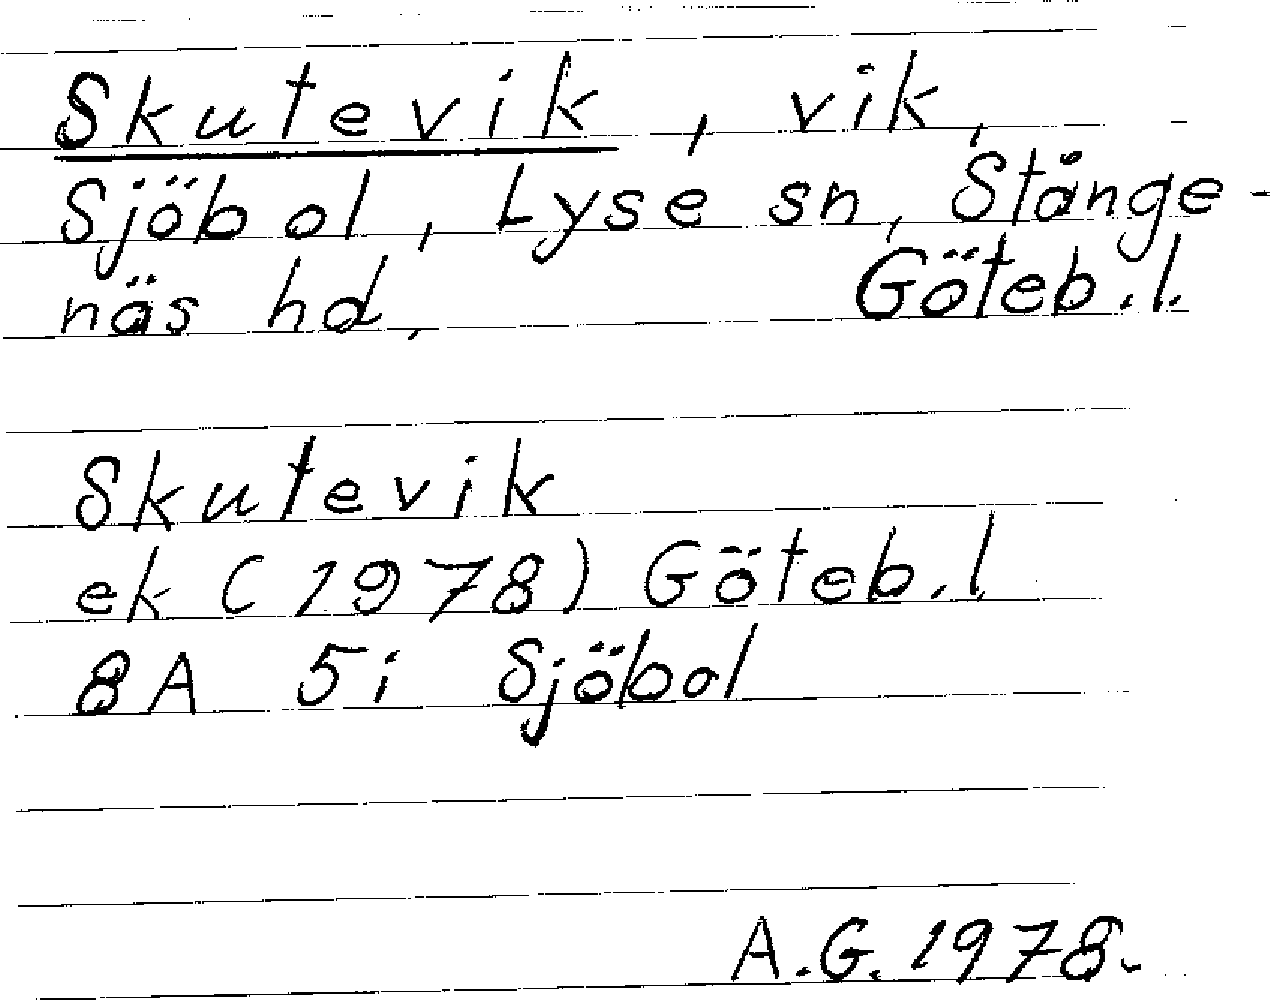 Skutevik, vik,
Sjöbol, Lyse sn, Stånge-
näs hd, Göteb.l.
Skutevik
ek (1978) Göteb.l
8A 5i Sjöbol
A.G. 1978.